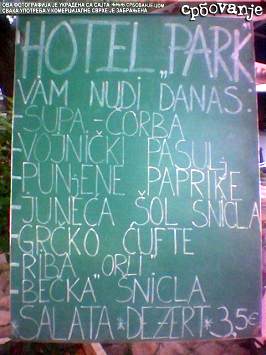 ОВА ФОТОГРАФИЈА ЈЕ УКРАДЕНА СА САЈТА WWW.СРБОВАЊЕ.ЦОМ
СВАКА УПОТРЕБА У КОМЕРЦИЈАЛНЕ СВРХЕ ЈЕ ЗАБРАЊЕНА
србовање
HOTEL „PARK
VAM NUDI DANAS:
-SUPA-ČORBA
-VOJNIČKI PASULj
-PUNjENE PAPRIKE
-JUNEĆA ŠOL. ŠNICLA
GRČKO ĆUFTE
-RIBA „ORLI"
-BEČKA ŠNICLA
SALATA*DEZERT*3,5€